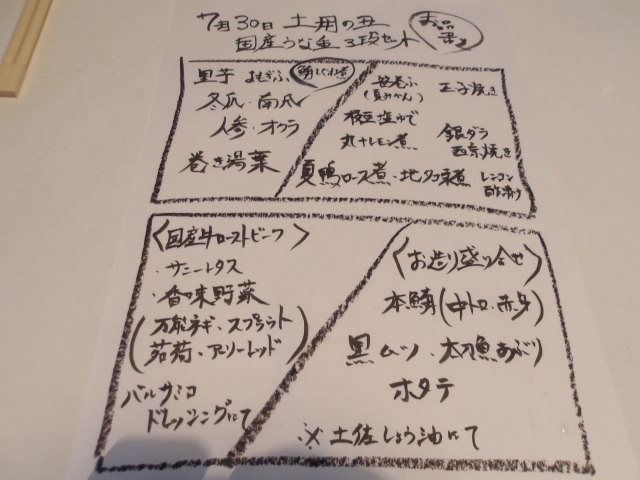 7月30日 土用の丑
国産うな重 3段セット
お品書き
里芋 よもぎふ
冬瓜・南瓜
人参・オクラ
巻き湯葉
笹巻ふ
玉子焼き
枝豆塩ゆで
丸十レモン煮
銀ダラ
西京焼き
夏鴨ロース煮・地タコ柔煮
レンコン
酢漬け
〈国産牛ローストビーフ〉
・サニーレタス
・香味野菜
(万能ネギ・スプラウト
茗荷・アーリーレッド)
バルサミコ
ドレッシングにて
〈お造り盛り合せ〉
本鮪(中トロ・赤身)
黒ムツ・太刀魚あぶり
ホタテ
※土佐しょう油にて